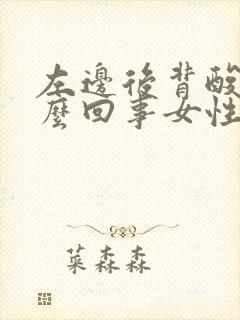 左邊後背酸
麼回事女性
葉森森